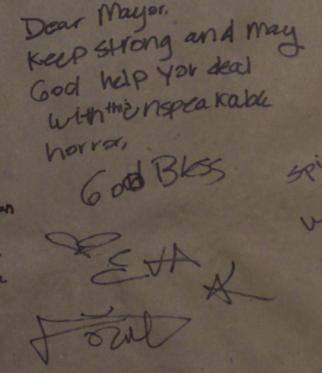 Dear Mayor.
Keep strong and may
God help you deal
with this unspeakable
horror.
God Bless
EVA
spi